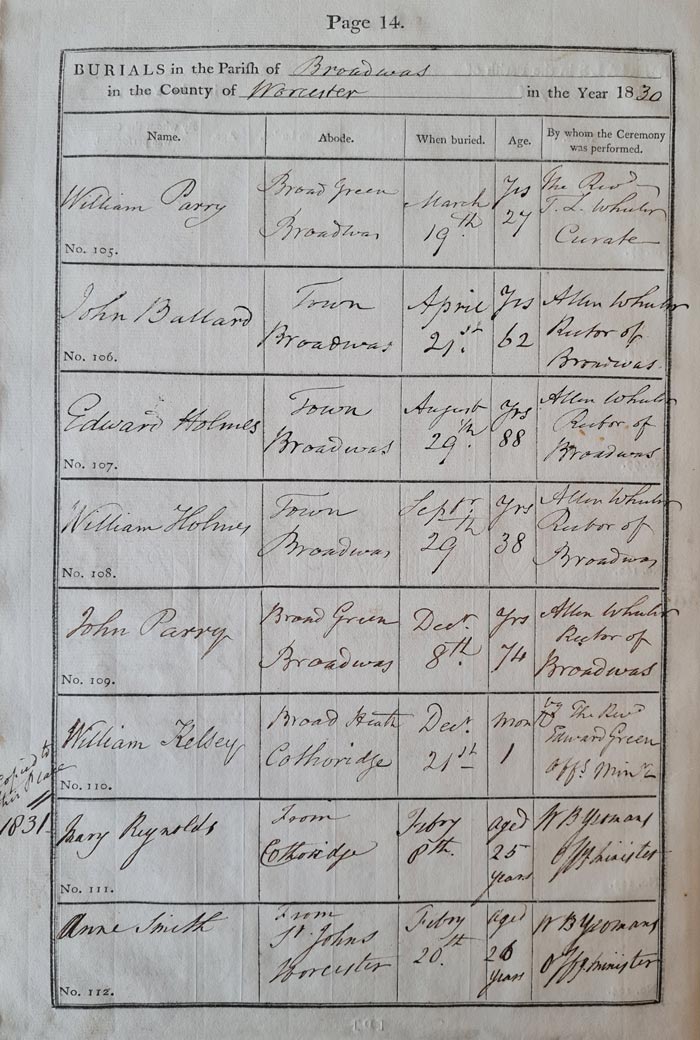 Page 14.
BURIALS in the Parish of Broadwas
in the County of Worcester in the Year 1830
Name. Abode. When buried. Age. By whom the Ceremony was performed.
William Parry
No. 105.
Broad Green
Broadwas
March
19th
Yrs
27
The Revd
T. L. Wheeler
Curate
John Ballard
No. 106.
Town
Broadwas
April
21st.
Yrs
62
Allen Wheeler
Rector of
Broadwas
Edward Holmes
No. 107.
Town
Broadwas
August
29th.
Yrs
88
Allen Wheeler
Rector of
Broadwas
William Holmes
No. 108.
Town
Broadwas
Septr.
29th
Yrs
38
Allen Wheeler
Rector of
Broadwas
John Parry
No. 109.
Broad Green
Broadwas
Decr.
8th.
Yrs
74
Allen Wheeler
Rector of
Broadwas
William Kelsey
No. 110.
Broad Heath
Cothoridge
Decr.
21st
Month
1
by The Revd
Edward Green
Offg Minr
Copied to
this Place
1831
Mary Reynolds
No. 111.
From
Cothoridge
Febry
8th.
aged
25
years
W B Yeomans
Offg minister
Anne Smith
No. 112.
From
St. Johns
Worcester
Febry
20th.
aged
26
years
W B Yeomans
Offg minister